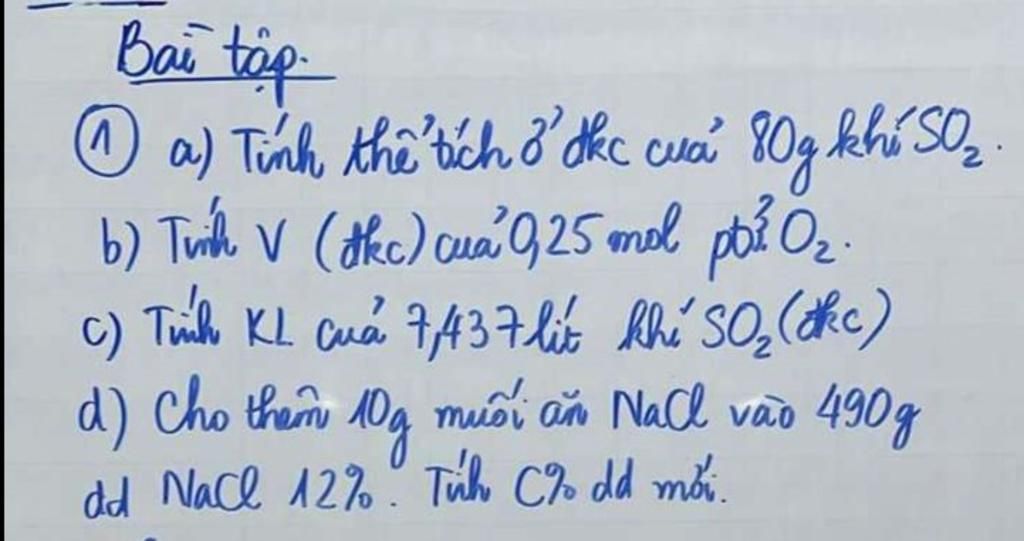 Bài tập.
① a) Tính thể tích ở đkc của 80g khí SO₂.
b) Tính V (đkc) của 0,25 mol ptử O₂.
c) Tính KL của 7,437 lít khí SO₂ (đkc)
d) Cho thêm 10g muối ăn NaCl vào 490g
dd NaCl 12%. Tính C% dd mới.